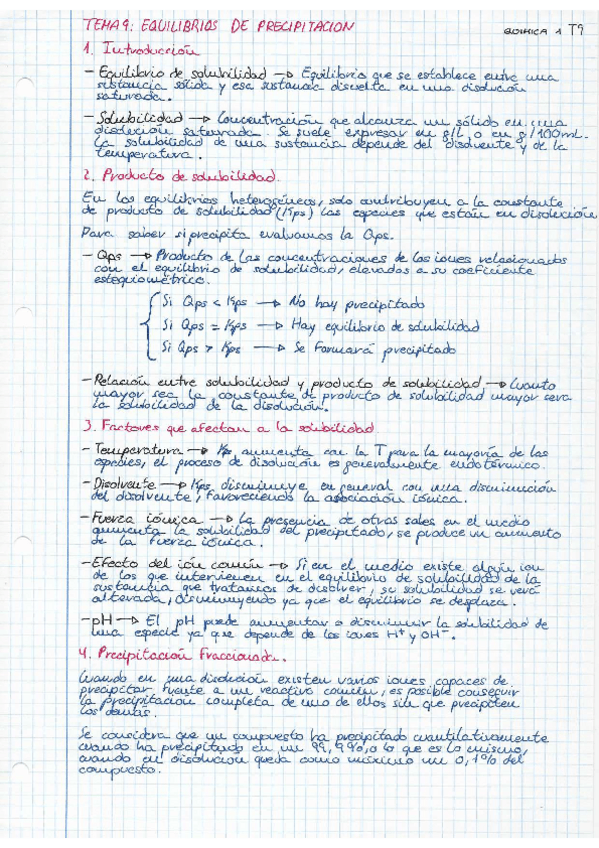 TEMA 9: EQUILIBRIOS DE PRECIPITACION
QUIMICA 1 T9
1. Introducción
- Equilibrio de solubilidad → Equilibrio que se establece entre una
sustancia sólida y esa sustancia disuelta en una disolución
saturada.
- Solubilidad → Concentración que alcanza un sólido en una
disolución saturada. Se suele expresar en g/L o en g/100mL.
La solubilidad de una sustancia depende del disolvente y de la
temperatura.
2. Producto de solubilidad.
En los equilibrios heterogéneos, solo contribuyen a la constante
de producto de solubilidad (Kps) las especies que están en disolución
Para saber si precipita evaluamos la Qps.
- Qps → Producto de las concentraciones de los iones relacionados
con el equilibrio de solubilidad, elevados a su coeficiente
estequiométrico.
Si Qps < Kps → No hay precipitado
Si Qps = Kps → Hay equilibrio de solubilidad
Si Qps > Kps → Se formará precipitado
- Relación entre solubilidad y producto de solubilidad → Cuanto
mayor sea la constante de producto de solubilidad mayor sera
la solubilidad de la disolución.
3. Factores que afectan a la solubilidad
- Temperatura → Kps aumenta con la T para la mayoría de las
especies, el proceso de disolución es generalmente endotérmico.
- Disolvente → Kps disminuye en general con una disminución
del disolvente, favoreciendo la asociación iónica.
- Fuerza iónica → La presencia de otras sales en el medio
aumenta la solubilidad del precipitado, se produce un aumento
de la fuerza iónica.
- Efecto del ión común → Si en el medio existe algún ion
de los que intervienen en el equilibrio de solubilidad de la
sustancia que tratamos de disolver, su solubilidad se verá
alterada, disminuyendo ya que el equilibrio se desplaza.
- pH → El pH puede aumentar o disminuir la solubilidad de
una especie ya que depende de los iones H⁺ y OH⁻.
4. Precipitación Fraccionada.
Cuando en una disolución existen varios iones capaces de
precipitar frente a un reactivo común, es posible conseguir
la precipitación completa de uno de ellos sin que precipiten
los demás.
Se considera que un compuesto ha precipitado cuantitativamente
cuando ha precipitado en un 99,9%, o lo que es lo mismo,
cuando en disolución queda como máximo un 0,1% del
compuesto.